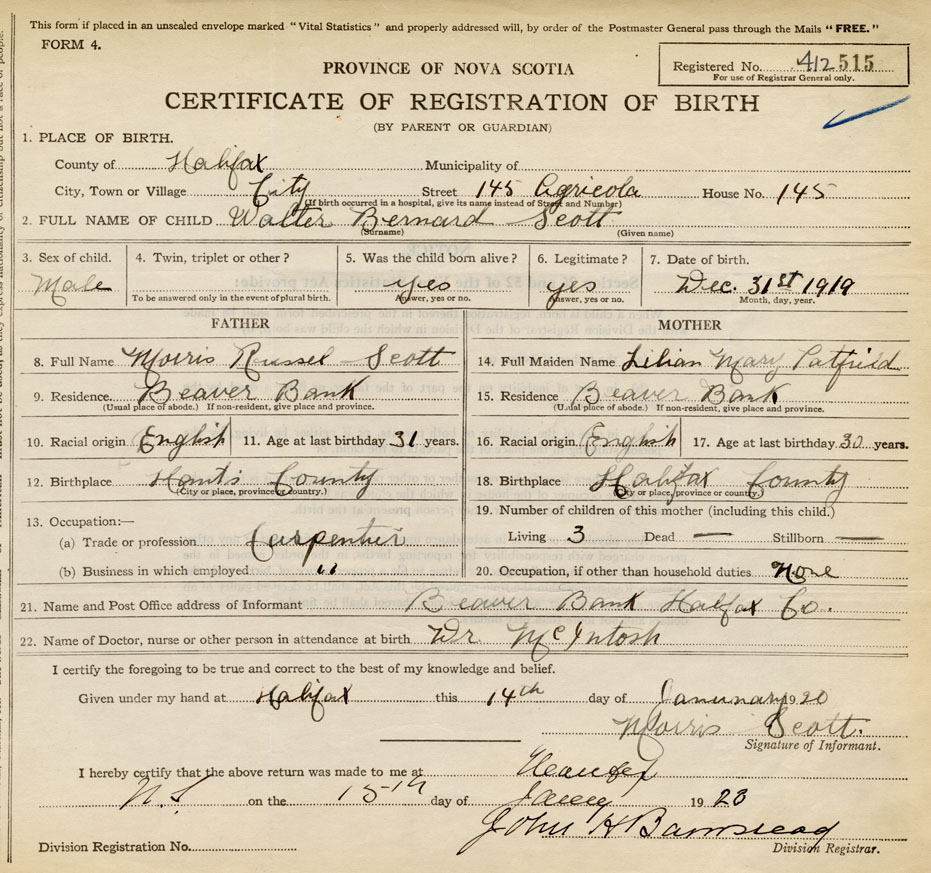 This form if placed in an unsealed envelope marked "Vital Statistics" and properly addressed will, by order of the Postmaster General pass through the Mails "FREE."
FORM 4.
Registered No. 412515
For use of Registrar General only.
PROVINCE OF NOVA SCOTIA
CERTIFICATE OF REGISTRATION OF BIRTH
(BY PARENT OR GUARDIAN)
1. PLACE OF BIRTH.
County of Halifax Municipality of
City, Town or Village City Street 145 Agricola House No. 145
(If birth occurred in a hospital, give its name instead of Street and Number)
2. FULL NAME OF CHILD Walter Bernard Scott
(Surname) (Given name)
3. Sex of child. 4. Twin, triplet or other? 5. Was the child born alive? 6. Legitimate? 7. Date of birth.
Male yes yes Dec. 31st 1919
To be answered only in the event of plural birth. Answer, yes or no. Answer, yes or no. Month, day, year.
FATHER MOTHER
8. Full Name Morris Russel Scott 14. Full Maiden Name Lilian Mary Patfield
9. Residence. Beaver Bank 15. Residence Beaver Bank
(Usual place of abode.) If non-resident, give place and province. (Usual place of abode.) If non-resident, give place and province.
10. Racial origin English 11. Age at last birthday 31 years. 16. Racial origin English 17. Age at last birthday 30 years.
12. Birthplace Hants County 18. Birthplace Halifax County
(City or place, province or country.) (City or place, province or country.)
13. Occupation:— 19. Number of children of this mother (including this child.)
(a) Trade or profession Carpentier Living 3 Dead — Stillborn —
(b) Business in which employed " 20. Occupation, if other than household duties None
21. Name and Post Office address of Informant Beaver Bank Halfax Co.
22. Name of Doctor, nurse or other person in attendance at birth Dr. McIntosh
I certify the foregoing to be true and correct to the best of my knowledge and belief.
Given under my hand at Halifax this 14th day of Janunary 1920
Morris Scott.
Signature of Informant.
I hereby certify that the above return was made to me at
N.S on the 15th day of 1923
John H Barnstead
Division Registration No. Division Registrar.